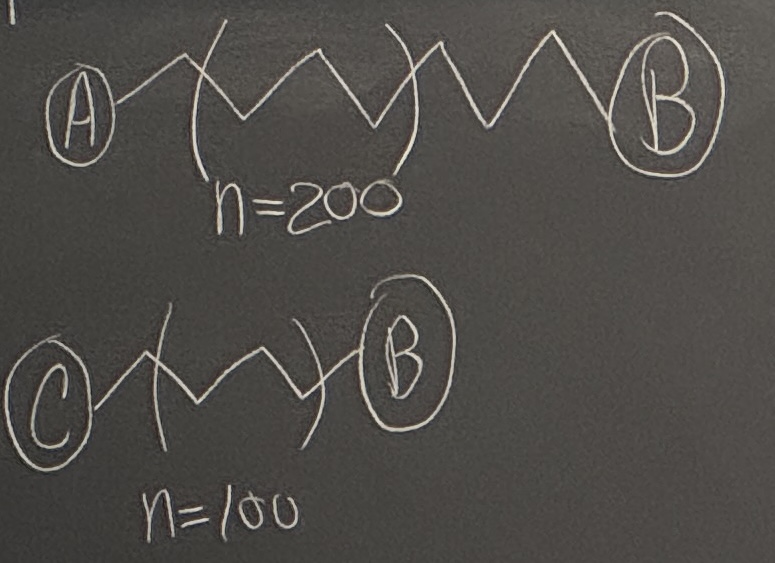 A ( ) B
n=200
C ( ) B
n=100